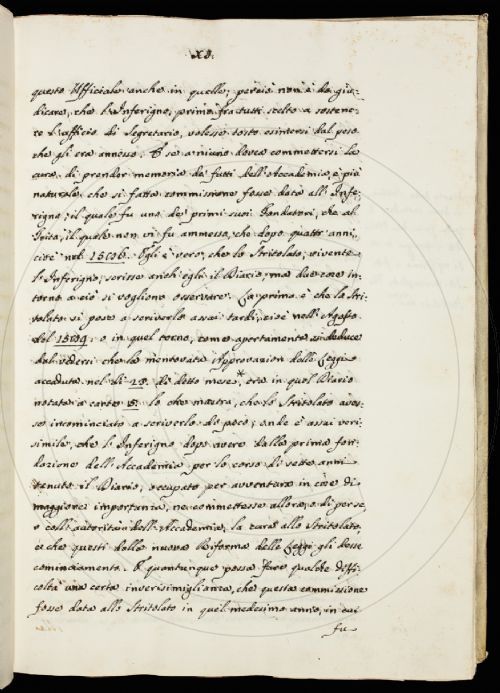 XI.
questo Ufficiale anche in quello; perciò non è da giu-
dicare, che l'Inferigno, primo fra tutti scelto a sostene-
re l'ufficio di Segretario, volesse tosto esimersi dal peso
che gli era annesso. E se a niuno dovea commettersi la
cura di prender memoria de' fatti dell'Accademia, è più
naturale che sì fatta commissione fosse data all'Infe-
rigno; il quale fu uno de' primi suoi Fondatori, che al
il quale non vi fu ammesso, che dopo quattr'anni,
cioè nel 1586. Egli è vero, che lo Stritolato, vivente
l'Inferigno, scrisse anch'egli il Diario; ma due cose in-
torno a ciò si vogliono osservare. La prima è che lo Stri-
tolato si pose a scriverlo assai tardi, cioè nell'Agosto
del 1589. o in quel torno, come apertamente si deduce
dal vedersi che la mentovata Approvazion delle Leggi
accaduta nel dì 13. di detto mese*, era in quel Diario
notata a carte 5. lo che mostra, che lo Stritolato aves-
se incominciato a scriverlo da poco; onde è assai veri-
simile, che l'Inferigno dopo avere dalla prima fon-
dazione dell'Accademia per lo corso di sette anni
tenuto il Diario, occupato per avventura in cose di
maggiore importanza, ne commettesse allora, o di per se,
o coll'autorità dell'Accademia, la cura allo Stritolato,
e che questi dalla nuova Riforma delle Leggi gli desse
cominciamento. E quantunque possa fare qualche diffi-
coltà una certa inverisimiglianza, che questa commissione
fosse data allo Stritolato in quel medesimo anno, in cui
fu